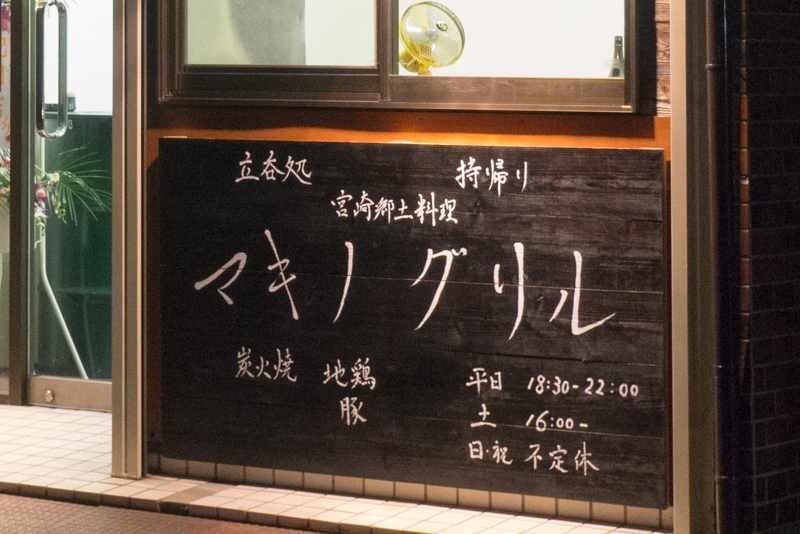 立呑処 持帰り
宮崎郷土料理
マキノグリル
炭火焼 地鶏
豚
平日 18:30-22:00
土 16:00-
日・祝 不定休